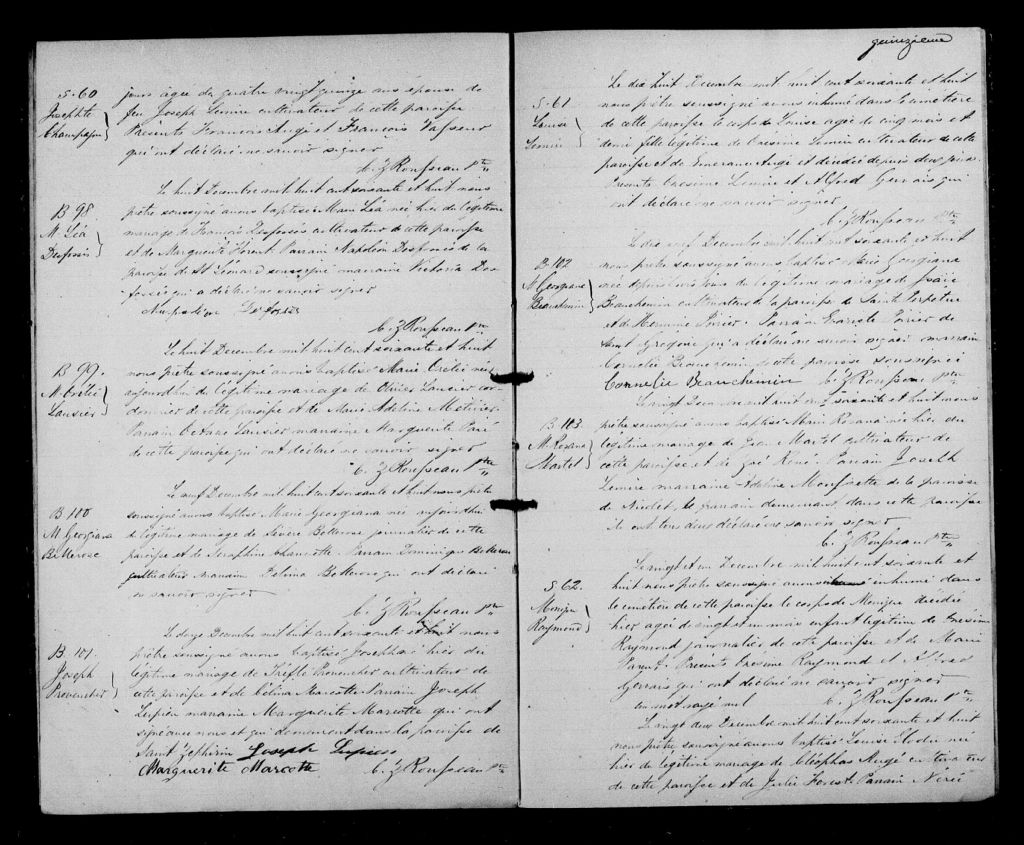 S. 60
Josephte
Champagne
jours agée de quatre vingt quinze ans épouse de
feu Joseph Lemire cultivateur de cette paroisse
Presents Francois Augé et François Vasseur
qui ont déclaré ne savoir signer
C. Z Rousseau Ptre
B 98
M. Léa
Desfossés
Le huit Decembre mil huit cent soixante et huit nous
prêtre soussigné avons baptisé Marie Léa née hier du légitime
mariage de François Desfossés cultivateur de cette paroisse
et de Marguerite Florent Parrain Napoléon Desfossés de la
paroisse de St Léonard soussigné marraine Victoria Des
fossés qui a déclaré ne savoir signer
Napoléon Desfossés
C. Z Rousseau Ptre
B 99.
M. Orélie
Lausier
Le huit Decembre mil huit cent soixante et huit
nous prêtre soussigné avons baptisé Marie Orélie née
aujourdhui du légitime mariage de Olivier Lausier cor
donnier de cette paroisse et de Marie Adeline Metivier
Parrain Octave Lausier marraine Marguerite Paré
de cette paroisse qui ont déclaré ne savoir signer
C. Z Rousseau Ptre
B 100
M. Georgiana
Bellerose
Le neuf Decembre mil huit cent soixante et huit nous prêtre
soussigné avons baptisé Marie Georgiana née aujourdhui
du légitime mariage de Sévère Bellerose journalier de cette
paroisse et de Seraphine Chaurette Parrain Dominique Bellerose
cultivateur marraine Delima Bellerose qui ont déclaré
ne savoir signer
C. Z Rousseau Ptre
B. 101.
Joseph
Provencher
Le douze Decembre mil huit cent soixante et huit nous
prêtre soussigné avons baptisé Joseph né hier du
légitime mariage de Théfle Provencher cultivateur de
cette paroisse et de Célina Marcotte Parrain Joseph
Lupien marraine Marguerite Marcotte qui ont
signé avec nous et qui demeurent dans la paroisse de
Saint Zephirin Joseph Lupien
Marguerite Marcotte C. Z Rousseau Ptre
quinzieme
S. 61
Louise
Lemire
Le dix huit Decembre mil huit cent soixante et huit
nous prêtre soussigné avons inhumé dans le cimetiere
de cette paroisse le corps de Louise agée de cinq mois et
demi fille légitime de Onesime Lemire cultivateur de cette
paroisse et de Emerance Augé et décédée depuis deux jours.
Presents Onesime Lemire et Alfred Gervais qui
ont déclaré ne savoir signer
C. Z Rousseau Ptre
B 102
M. Georgiana
Beauchemin
Le dix neuf Decembre mil huit cent soixante et huit
nous prêtre soussigné avons baptisé Marie Georgiana
née depuis trois jours du légitime mariage de Isaïe
Beauchemin cultivateur de la paroisse de Sainte Perpetue
et de Hermine Poirier. Parrain Evariste Poirier de
Saint Gregoire qui a déclaré ne savoir signer marraine
Cornélie Beauchemin de cette paroisse soussignée
Cornelie Beauchemin C. Z Rousseau Ptre
B. 103.
M. Rosana
Martel
Le vingt Decembre mil huit cent soixante et huit nous
prêtre soussigné avons baptisé Marie Rosana née hier du
légitime mariage de Jean Martel cultivateur de
cette paroisse et de Zoé René Parrain Joseph
Lemire marraine Adeline Monfrette de la paroisse
de Nicolet, le parrain demeurant dans cette paroisse
ils ont tous deux déclaré ne savoir signer
C. Z Rousseau Ptre
S 62.
Monique
Raymond
Le vingt et un Decembre mil huit cent soixante et
huit nous prêtre soussigné avons inhumé dans
le cimetiere de cette paroisse le corps de Monique décédée
hier agée de vingt et un mois enfant légitime de Onesime
Raymond journalier de cette paroisse et de Marie
Parent. Presents Onesime Raymond et Alfred
Gervais qui ont déclaré ne savoir signer
un mot rayé nul C. Z Rousseau Ptre
Le vingt deux Decembre mil huit cent soixante et huit
nous prêtre soussigné avons baptisé Louise Elodie née
hier du légitime mariage de Cléophas Augé cultivateur
de cette paroisse et de Julie Forest. Parrain Nérée